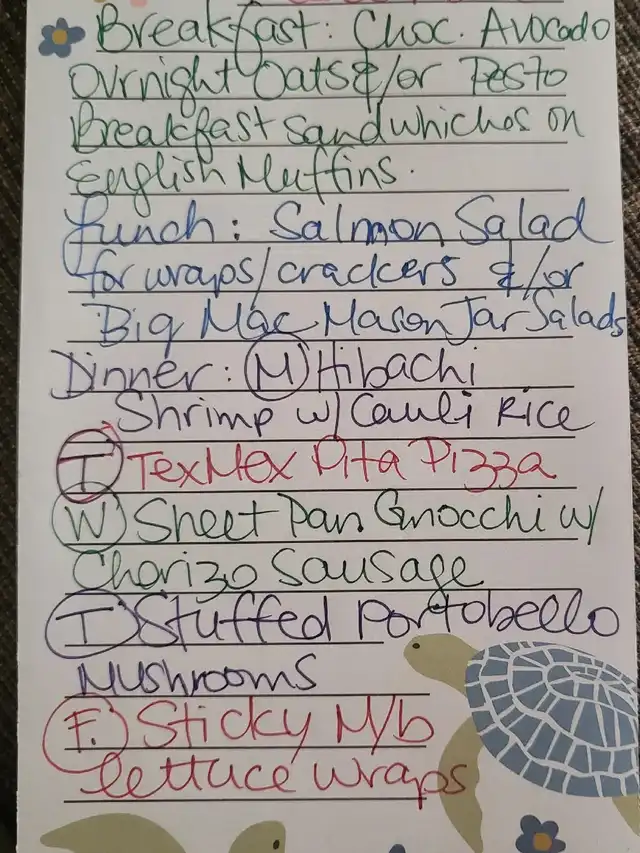 Breakfast: Choc. Avocado
Ovrnight Oats &/or Pesto
Breakfast Sandwhiches on
English Muffins.
Lunch: Salmon Salad
for wraps/crackers &/or
Big Mac Mason Jar Salads
Dinner: (M) Hibachi
Shrimp w/ Cauli Rice
(T) TexMex Pita Pizza
(W) Sheet Pan Gnocchi w/
Chorizo Sausage
(T) Stuffed Portobello
Mushrooms
(F.) Sticky M/b
lettuce wraps